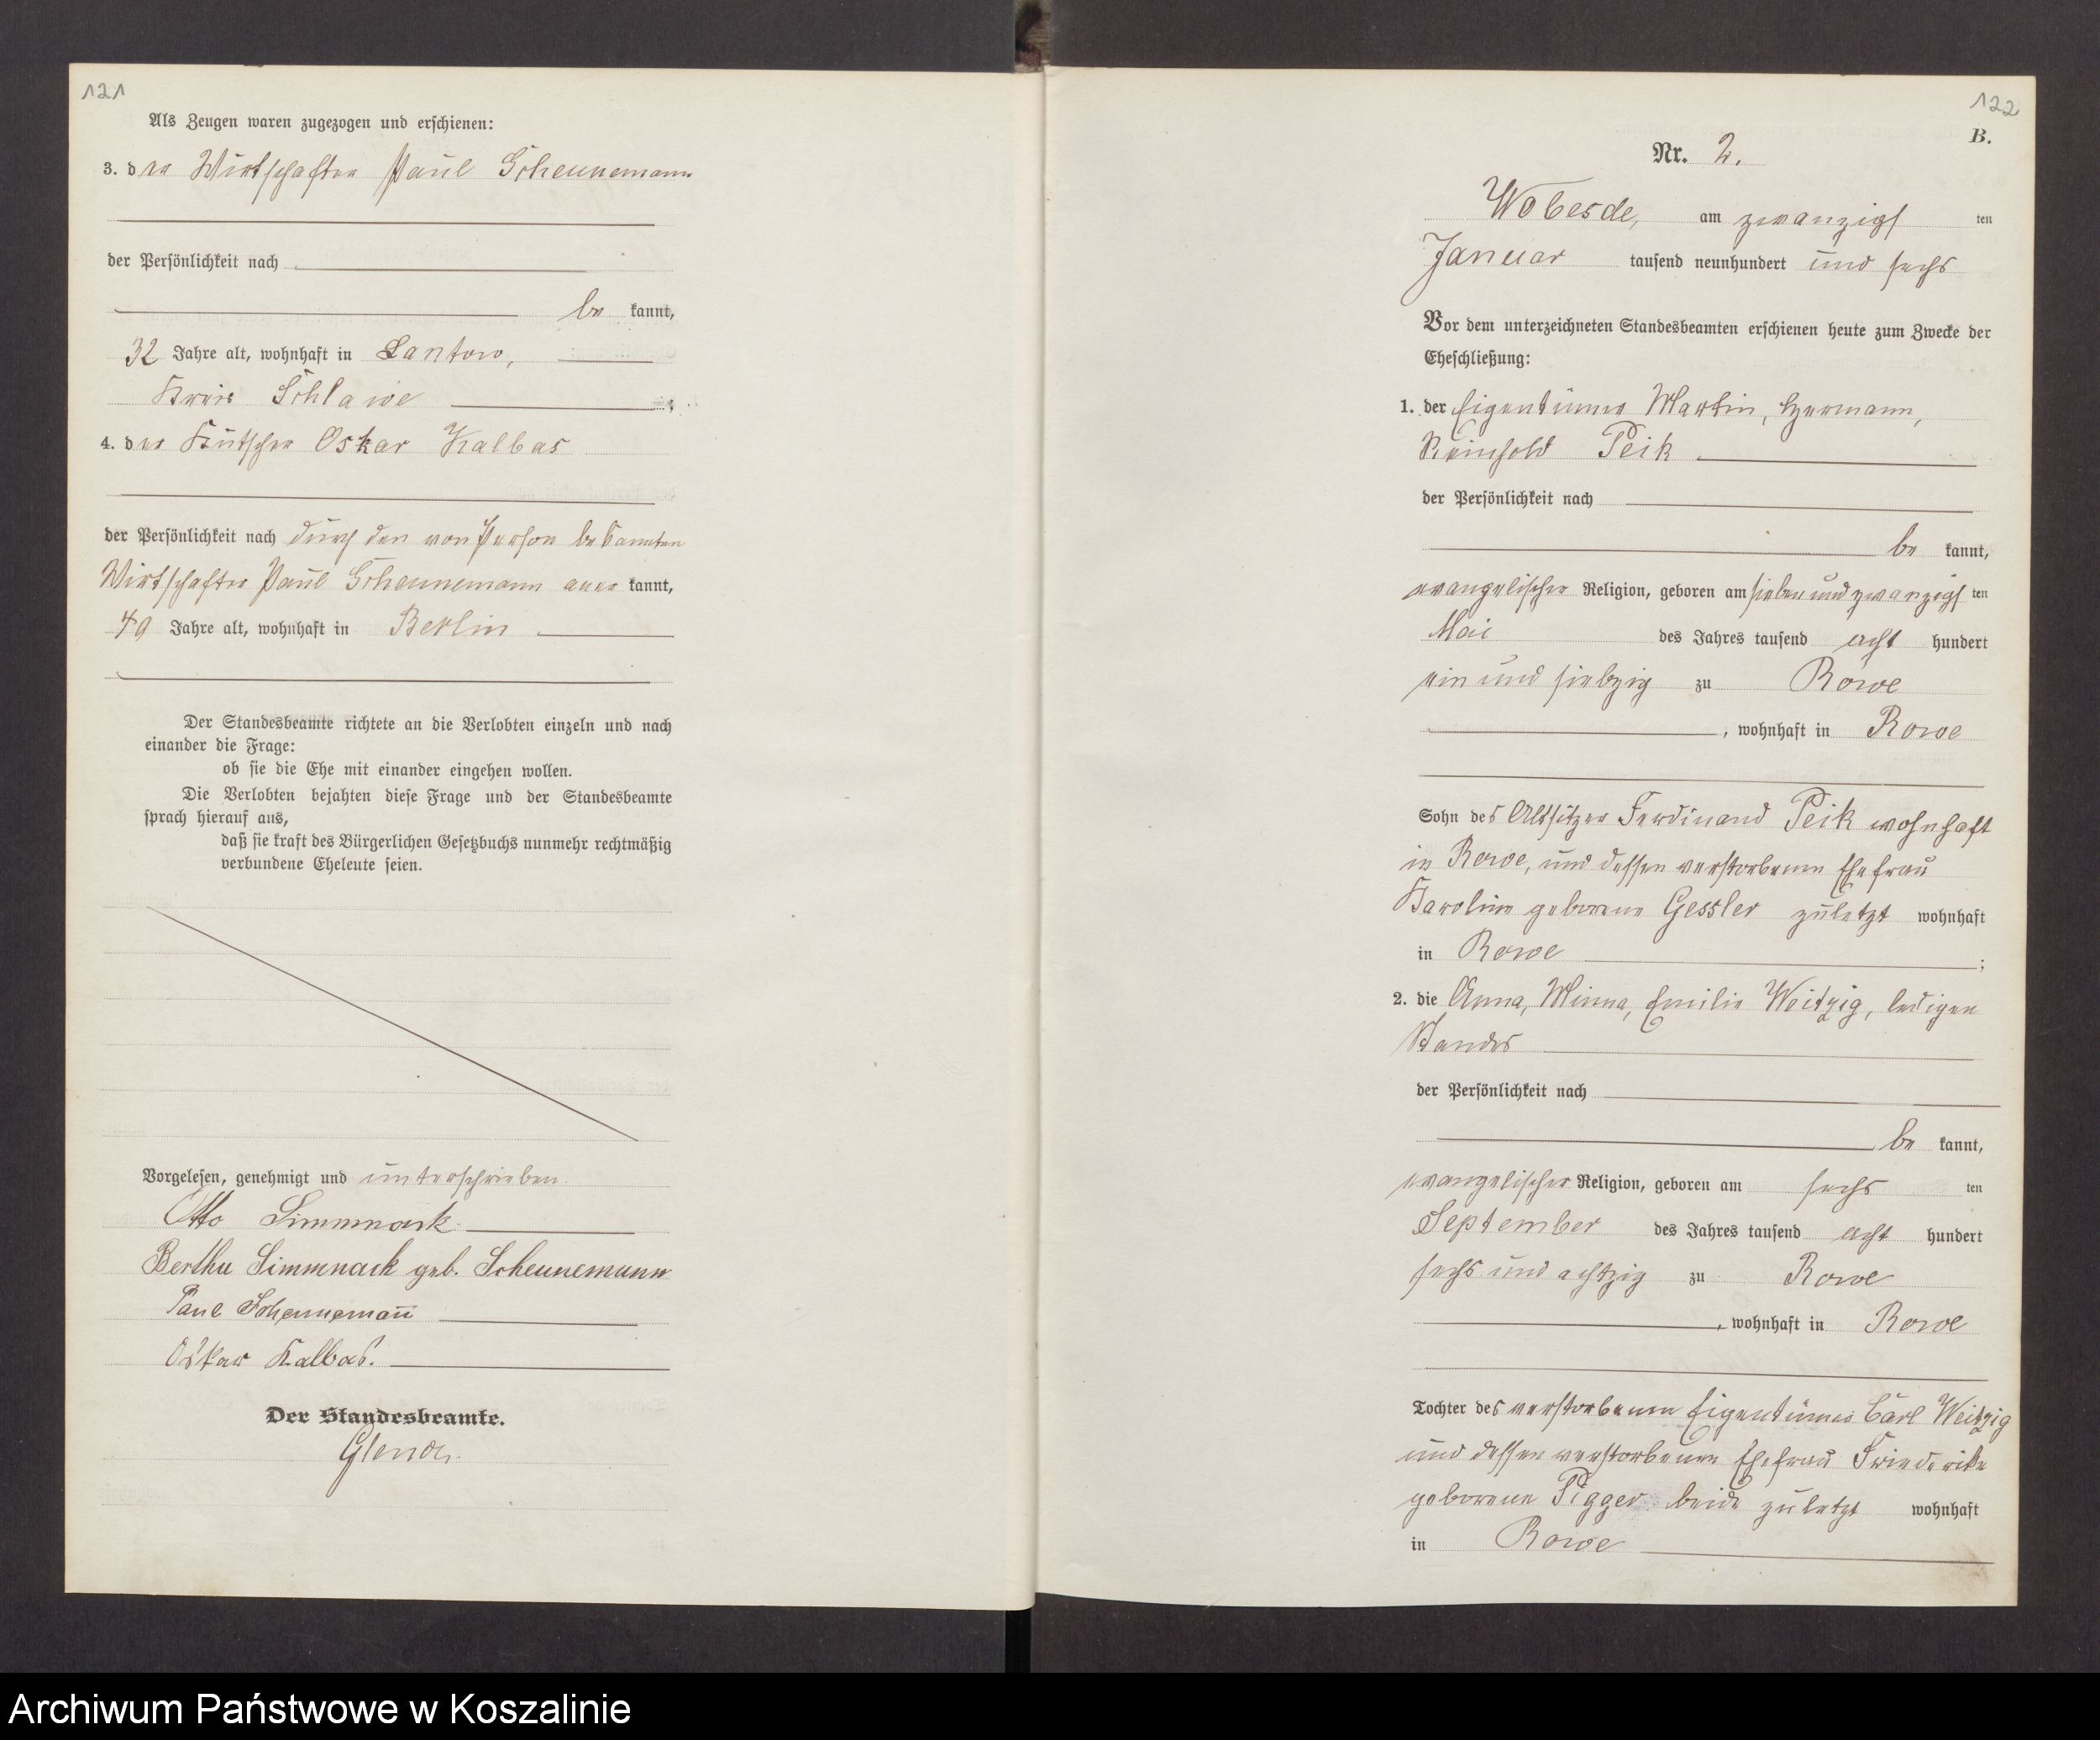 121
Als Zeugen waren zugezogen und erschienen:
3. der Wirtschafter Paul Scheunemann
der Persönlichkeit nach
be kannt,
32 Jahre alt, wohnhaft in Lantow,
Kreis Schlawe
4. der Kutscher Oskar Kalbas
der Persönlichkeit nach durch den von Person bekannten
Wirtschafter Paul Scheunemann aner kannt,
49 Jahre alt, wohnhaft in Berlin
Der Standesbeamte richtete an die Verlobten einzeln und nach
einander die Frage:
ob sie die Ehe mit einander eingehen wollen.
Die Verlobten bejahten diese Frage und der Standesbeamte
sprach hierauf aus,
daß sie kraft des Bürgerlichen Gesetzbuchs nunmehr rechtmäßig
verbundene Eheleute seien.
Vorgelesen, genehmigt und unterschrieben
Otto Simmnack
Bertha Simmnack geb. Scheunemann
Paul Scheunemann
Oskar Kalbas.
Der Standesbeamte.
122
B.
Nr. 2.
Wobesde, am zwanzigs ten
Januar tausend neunhundert und sechs
Vor dem unterzeichneten Standesbeamten erschienen heute zum Zwecke der
Eheschließung:
1. der Eigentümer Martin, Hermann,
Reinhold Peik
der Persönlichkeit nach
be kannt,
evangelischer Religion, geboren am sieben und zwanzigs ten
Mai des Jahres tausend acht hundert
ein und siebzig zu Rowe
, wohnhaft in Rowe
Sohn des Altsitzer Ferdinand Peik wohnhaft
in Rowe, und dessen verstorbenen Ehefrau
Karoline geborene Gessler zuletzt wohnhaft
in Rowe ;
2. die Anna, Minna, Emilie Weitzig, ledigen
Standes
der Persönlichkeit nach
be kannt,
evangelischer Religion, geboren am sechs ten
September des Jahres tausend acht hundert
sechs und achtzig zu Rowe
, wohnhaft in Rowe
Tochter des verstorbenen Eigentümer Carl Weitzig
und dessen verstorbenen Ehefrau Friederike
geborene Pigger beide zuletzt wohnhaft
in Rowe
Archiwum Państwowe w Koszalinie